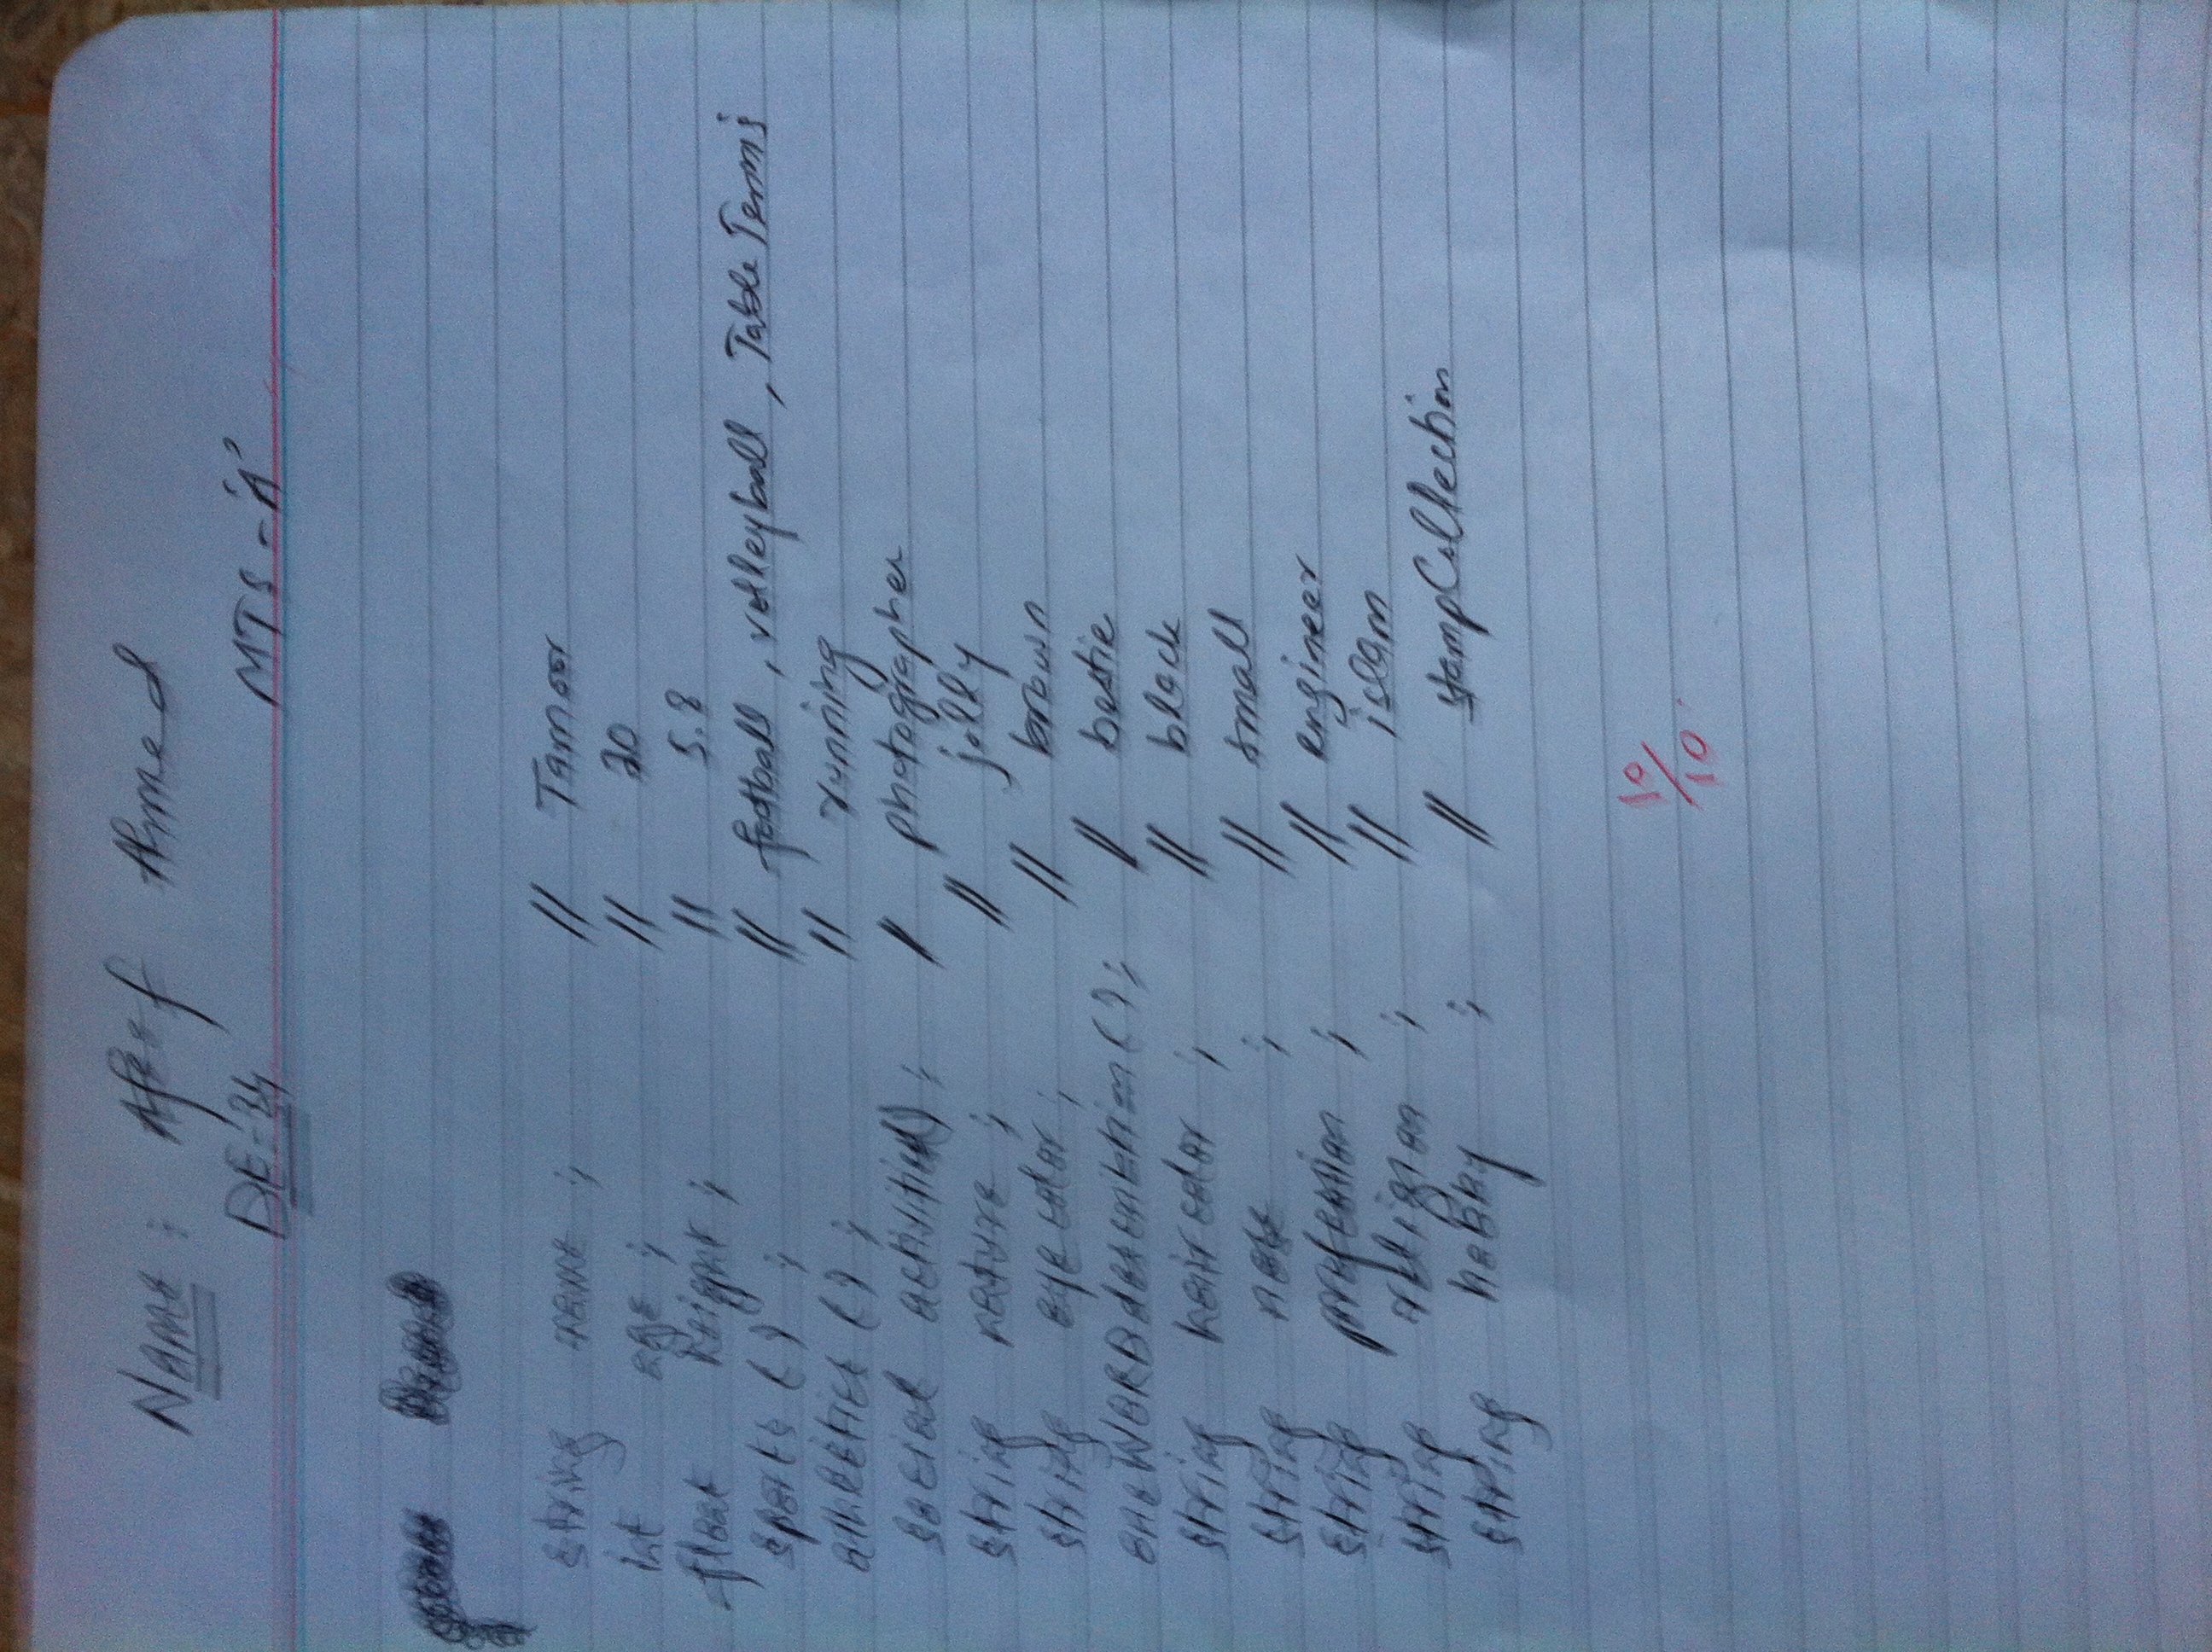 Name : Afeef Ahmed
DE-34 MTS-'A'
string name ; // Tamoor
int age ; // 20
float height ; // 5.8
sports ( ) ; // football , volleyball , Table Tennis
athletics ( ) ; // running
social activities() ; // photographer
string nature ; // jolly
string eye color ; // brown
oneWORDdescribtion ( ) ; // bestie
string hair color ; // black
string nose ; // small
string profession ; // engineer
string religion ; // islam
string hobby ; // stampCollection
10/10